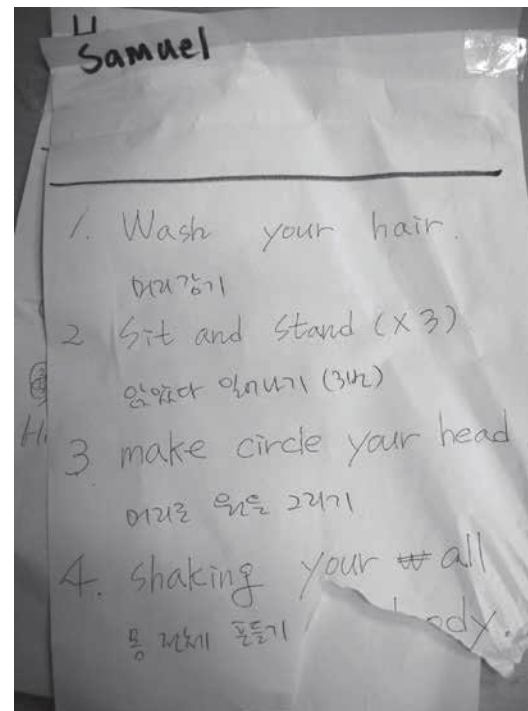 Samuel
1. Wash your hair.
머리감기
2 Sit and Stand (X3)
앉았다 일어나기 (3번)
3 make circle your head
머리로 원을 그리기
4. shaking your all
body.
몸 전체 흔들기